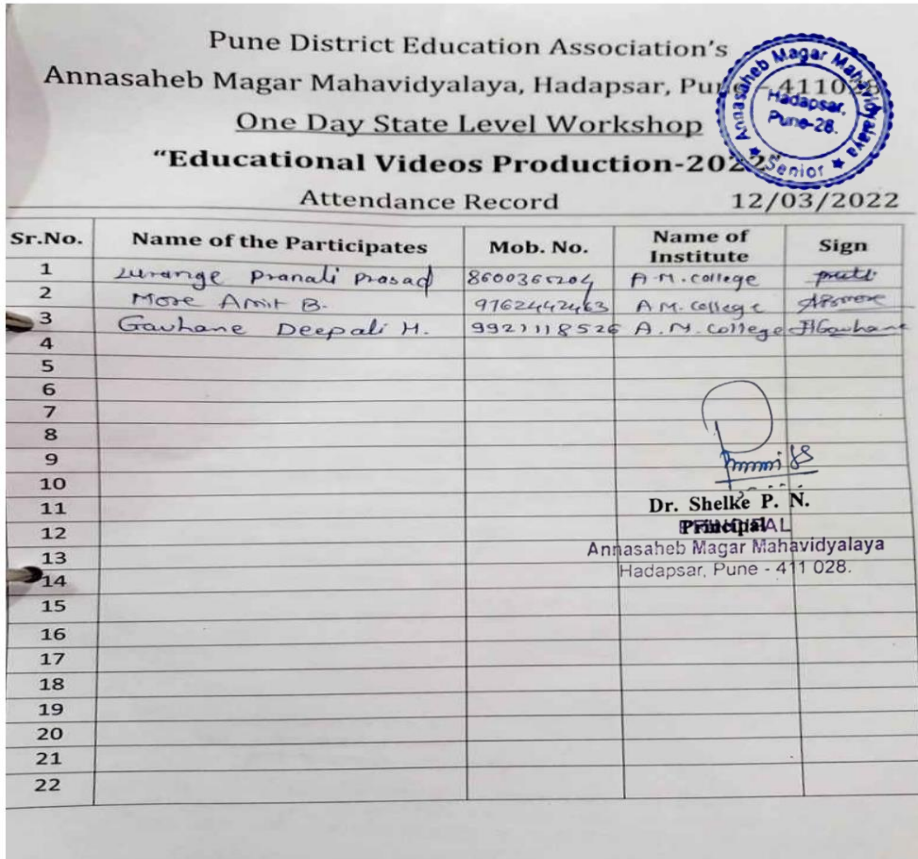 Pune District Education Association's
Annasaheb Magar Mahavidyalaya, Hadapsar, Pune - 411028
One Day State Level Workshop
"Educational Videos Production-2022"
Attendance Record 12/03/2022
Annasaheb Magar Mahavidyalaya
Hadapsar,
Pune-28.
Senior
Sr.No. Name of the Participates Mob. No. Name of Institute Sign
1 Pranali Prasad 8600365204 A.M. college
2 More Amit B. 9762442463 A.M. college
3 Gavhane Deepali H. 9921118526 A.M. college Gavhane
4
5
6
7
8
9
10
11
12
13
14
15
16
17
18
19
20
21
22
Dr. Shelke P. N.
Principal
PRINCIPAL
Annasaheb Magar Mahavidyalaya
Hadapsar, Pune - 411 028.